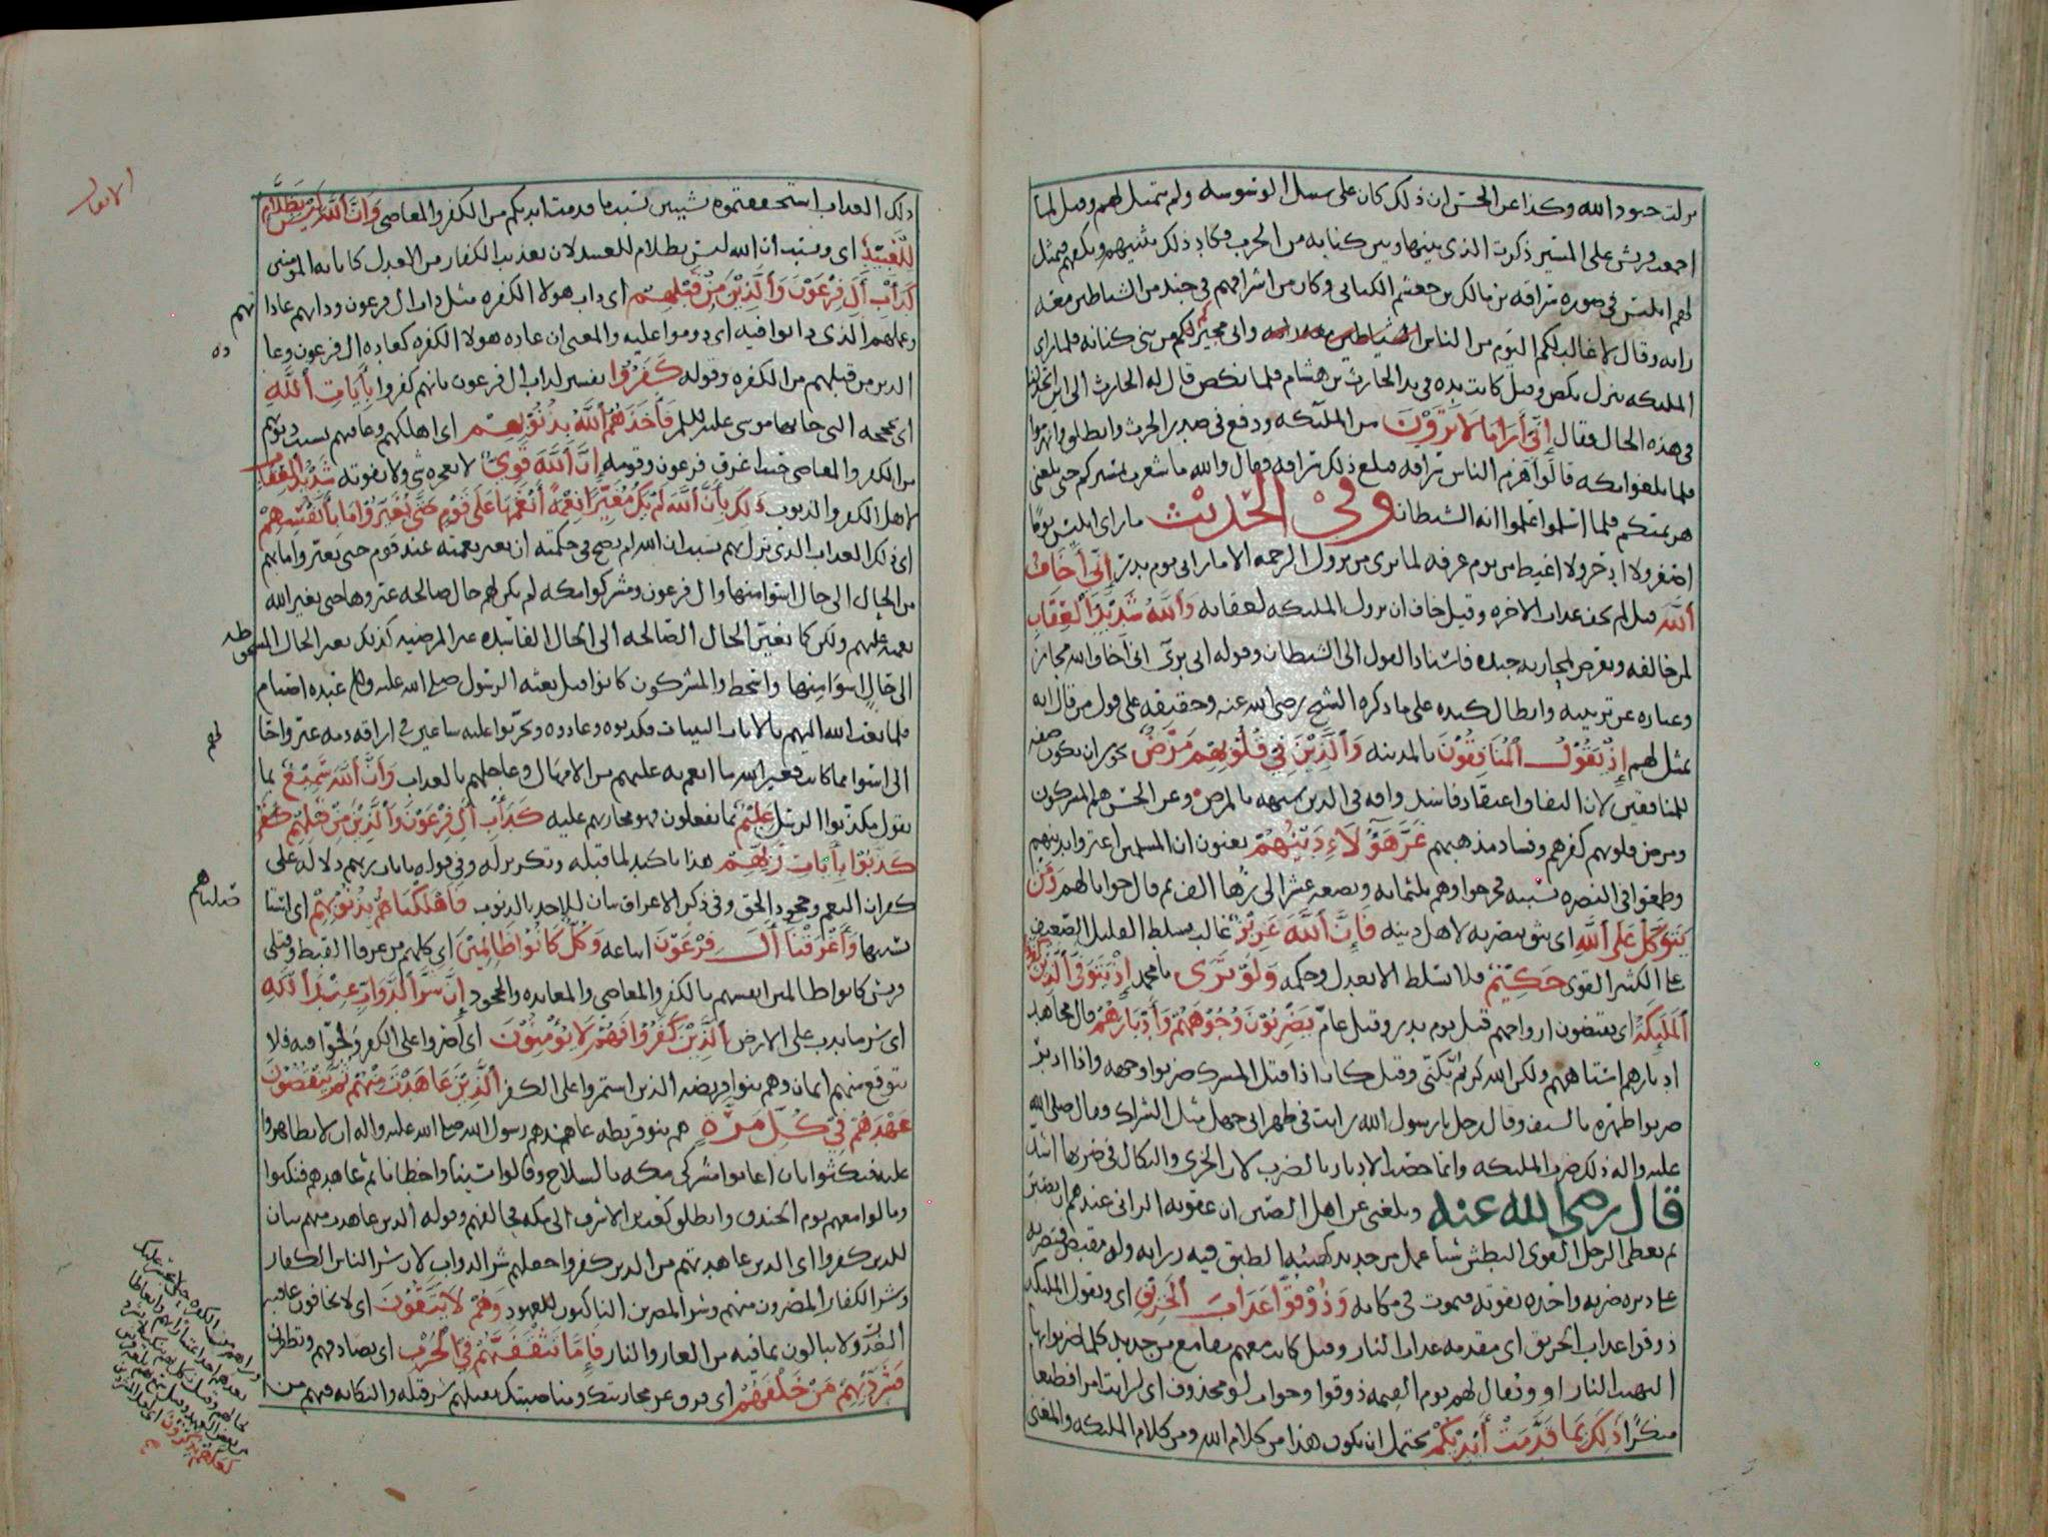 نزلت جنود الله وكذا عن الحسن ان ذلك كان على سبيل الوسوسه ولم يتمثل لهم وقيل لما
اجمعت قريش على المسير ذكرت الذي بينها وبين كنانه من الحرب فكاد ذلك يثنيهم
لهم ابليس في صوره سراقه بن مالك بن جعشم الكناني وكان من اشرافهم في جند من الشياطين معه
رايه وقال لا غالب لكم اليوم من الناس واني مجير لكم من بني كنانه فلما راى
المليكه تنزل نكص وقيل كانت يده في يد الحارث بن هشام فلما نكص قال له الحارث الى اين
في هذه الحال فقال إِنِّي أَرَى مَا لَا تَرَوْنَ من المليكه ودفع في صدر الحرث وانطلق وانهزموا
فلما بلغوا مكه قالوا هزم الناس سراقه فبلغ ذلك سراقه فقال والله ما شعرت بمسيركم حتى بلغني
هزيمتكم فلما اسلموا علموا انه الشيطان وفي الحديث ما راى ابليس يوما
اصغر ولا ادحر ولا اغيظ من يوم عرفه لما يرى من نزول الرحمه الا ما راى يوم بدر إِنِّي أَخَافُ
اللَّهَ قيل لم يخف عذاب الاخره وقيل خاف ان نزول المليكه لعقابه وَاللَّهُ شَدِيدُ الْعِقَابِ
لمن خالفه وتعرض لمحاربه جنده فاسناد القول الى الشيطان وقوله اني بري اني اخاف الله مجاز
وعباره عن تزيينه وابطال كيده على ما ذكره الشيخ رضي الله عنه وحقيقه على قول من قال انه
تمثل لهم إِذْ يَقُولُ الْمُنَافِقُونَ بالمدينه وَالَّذِينَ فِي قُلُوبِهِمْ مَرَضٌ يجوز ان يكون صفه
للمنافقين لان النفاق اعتقاد فاسد وافه في الدين شبهه بالمرض وعن الحسن هم المشركون
ومرض قلوبهم كفرهم وفساد مذهبهم غَرَّ هَؤُلَاءِ دِينُهُمْ يعنون ان المسلمين اغتروا بدينهم
وطمعوا في النصره بسببه فخرجوا وهم ثلثمائه وبضعه عشر الى زها الف ثم قال جوابا لهم وَمَنْ
يَتَوَكَّلْ عَلَى اللَّهِ اي يثق بنصره لاهل دينه فَإِنَّ اللَّهَ عَزِيزٌ غالب يسلط القليل الضعيف
على الكثير القوي حَكِيمٌ فلا يسلط الا بعدل وحكمه وَلَوْ تَرَى يا محمد إِذْ يَتَوَفَّى الَّذِينَ كَفَرُوا
الْمَلَائِكَةُ اي يقبضون ارواحهم قيل يوم بدر وقيل عام يَضْرِبُونَ وُجُوهَهُمْ وَأَدْبَارَهُمْ قال مجاهد
ادبارهم استاههم ولكن الله كريم يكني وقيل كان اذا قبل المشرك ضربوا وجهه واذا ادبر
ضربوا ظهره بالسيف وقال رجل يا رسول الله رايت في ظهر ابي جهل مثل الشراك وقال صلى الله
عليه واله ذلك ضرب المليكه وانما خص الادبار بالضرب لان الخزي والنكال في ضربها اشد
قال رضي الله عنه وبلغني عن اهل الصين ان عقوبه الزاني عندهم ان يصبر
ثم يعطى الرجل القوي البطش شيا عمل من حديد كهيئه الطبق فيه رزانه وله مقبض فيضربه
على دبره ضربه واحده بقوته فيموت في مكانه وَذُوقُوا عَذَابَ الْحَرِيقِ اي ويقول المليكه
ذوقوا عذاب الحريق اي مقدمه عذاب النار وقيل كانت معهم مقامع من حديد كلما ضربوا بها
التهبت النار او ويقال لهم يوم القيمه ذوقوا وجواب لو محذوف اي لرايت امرا فظيعا
منكرا ذَلِكَ بِمَا قَدَّمَتْ أَيْدِيكُمْ يحتمل ان يكون هذا من كلام الله ومن كلام المليكه والمعنى
الانفال
ذلك العذاب استحققتموه بشيئين بسبب ما قدمت ايديكم من الكفر والمعاصي وَأَنَّ اللَّهَ لَيْسَ بِظَلَّامٍ
لِلْعَبِيدِ اي وبسبب ان الله ليس بظلام للعبيد لان تعذيب الكفار من العدل كاثابه المومنين
كَدَأْبِ آلِ فِرْعَوْنَ وَالَّذِينَ مِنْ قَبْلِهِمْ اي داب هولا الكفره مثل داب ال فرعون ودابهم عادا
تهم
وعملهم الذي دابوا فيه اي دوموا عليه والمعنى ان عاده هولا الكفره كعاده ال فرعون وعا
ده
الذين من قبلهم من الكفره وقوله كَفَرُوا تفسير لداب ال فرعون بانهم كفروا بِآيَاتِ اللَّهِ
اي بحججه التي جا بها موسى عليه السلام فَأَخَذَهُمُ اللَّهُ بِذُنُوبِهِمْ اي اهلكهم وعاقبهم بسبب ذنوبهم
من الكفر والمعاصي حيث اغرق فرعون وقومه إِنَّ اللَّهَ قَوِيٌّ لا يعجزه شي ولا يفوته شَدِيدُ الْعِقَابِ
لاهل الكفر والذنوب ذَلِكَ بِأَنَّ اللَّهَ لَمْ يَكُ مُغَيِّرًا نِعْمَةً أَنْعَمَهَا عَلَى قَوْمٍ حَتَّى يُغَيِّرُوا مَا بِأَنْفُسِهِمْ
اي ذلك العذاب الذي نزل بهم بسبب ان الله لم يصح في حكمته ان يغير نعمته عند قوم حتى يغيروا ما بهم
من الحال الى حال اسوا منها وال فرعون ومشركوا مكه لم يكن لهم حال صالحه غيروها حتى يغير الله
نعمته عليهم ولكن كما تغير الحال الصالحه الى الحال الفاسده غير المرضيه كذلك تغير الحال المسخوطه
الى حال اسوا منها واسخط والمشركون كانوا قبل بعثه الرسول صلى الله عليه واله عبده اصنام
فلما بعث الله اليهم بالايات البينات فكذبوه وعادوه وتحزبوا عليه ساعين في اراقه دمه غيروا حا
لهم
الى اسوا مما كانت فغير الله ما انعم به عليهم من الامهال وعاجلهم بالعذاب وَأَنَّ اللَّهَ سَمِيعٌ بما
يقول مكذبوا الرسل عَلِيمٌ بما يفعلون فهو مجازيهم عليه كَدَأْبِ آلِ فِرْعَوْنَ وَالَّذِينَ مِنْ قَبْلِهِمْ
كَذَّبُوا بِآيَاتِ رَبِّهِمْ هذا تاكيد لما قبله وتكرير له وفي قوله بايات ربهم دلاله على
كفران النعم وجحود الحق وفي ذكر الاغراق بيان للاخذ بالذنوب فَأَهْلَكْنَاهُمْ بِذُنُوبِهِمْ اي
بسببها وَأَغْرَقْنَا آلَ فِرْعَوْنَ اتباعه وَكُلٌّ كَانُوا ظَالِمِينَ اي كلهم من غرقا القبط وقتلى
قريش كانوا ظالمين انفسهم بالكفر والمعاصي والمعانده والجحود إِنَّ شَرَّ الدَّوَابِّ عِنْدَ اللَّهِ
اي شر ما يدب على الارض الَّذِينَ كَفَرُوا فَهُمْ لَا يُؤْمِنُونَ اي اصروا على الكفر ولجوا فيه فلا
يتوقع منهم ايمان وهم بنو قريضه الذين استمروا على الكفر الَّذِينَ عَاهَدْتَ مِنْهُمْ ثُمَّ يَنْقُضُونَ
عَهْدَهُمْ فِي كُلِّ مَرَّةٍ هم بنو قريظه عاهدهم رسول الله صلى الله عليه واله ان لا يظاهروا
عليه فنكثوا بان اعانوا مشركي مكه بالسلاح وقالوا نسينا واخطانا ثم عاهدهم فنكثوا
ومالوا معهم يوم الخندق وانطلق كعب بن الاشرف الى مكه فحالفهم وقوله الذين عاهدت منهم بيان
للذين كفروا اي الذين عاهدتهم من الذين كفروا جعلهم شر الدواب لان شر الناس الكفار
وشر الكفار المصرون منهم وشر المصرين الناكثون للعهود وَهُمْ لَا يَتَّقُونَ اي لا يخافون عاقبه
الغدر ولا يبالون بما فيه من العار والنار فَإِمَّا تَثْقَفَنَّهُمْ فِي الْحَرْبِ اي تصادفهم وتظفرن
فَشَرِّدْ بِهِمْ مَنْ خَلْفَهُمْ اي فرق عن محاربتك ومناصبتك بقتلهم شر قتله والنكايه فيهم من
لَعَلَّهُمْ يَذَّكَّرُونَ